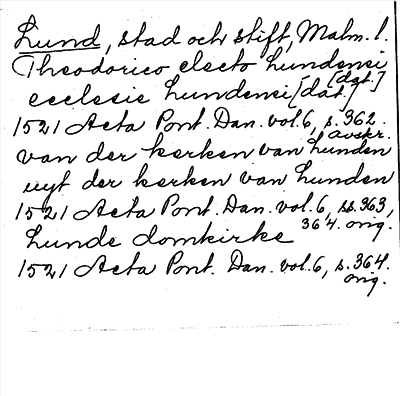 Lund, stad och stift, Malm. l.
Theodorico electo Lundensi [dat.]
ecclesie Lundensi [dat.]
1521 Acta Pont. Dan. vol. 6, s. 362. avskr.
van der kerken van Lunden
uyt der kerken van Lunden
1521 Acta Pont. Dan. vol. 6, ss. 363, 364. orig.
Lunde domkirke
1521 Acta Pont. Dan. vol. 6, s. 364. orig.